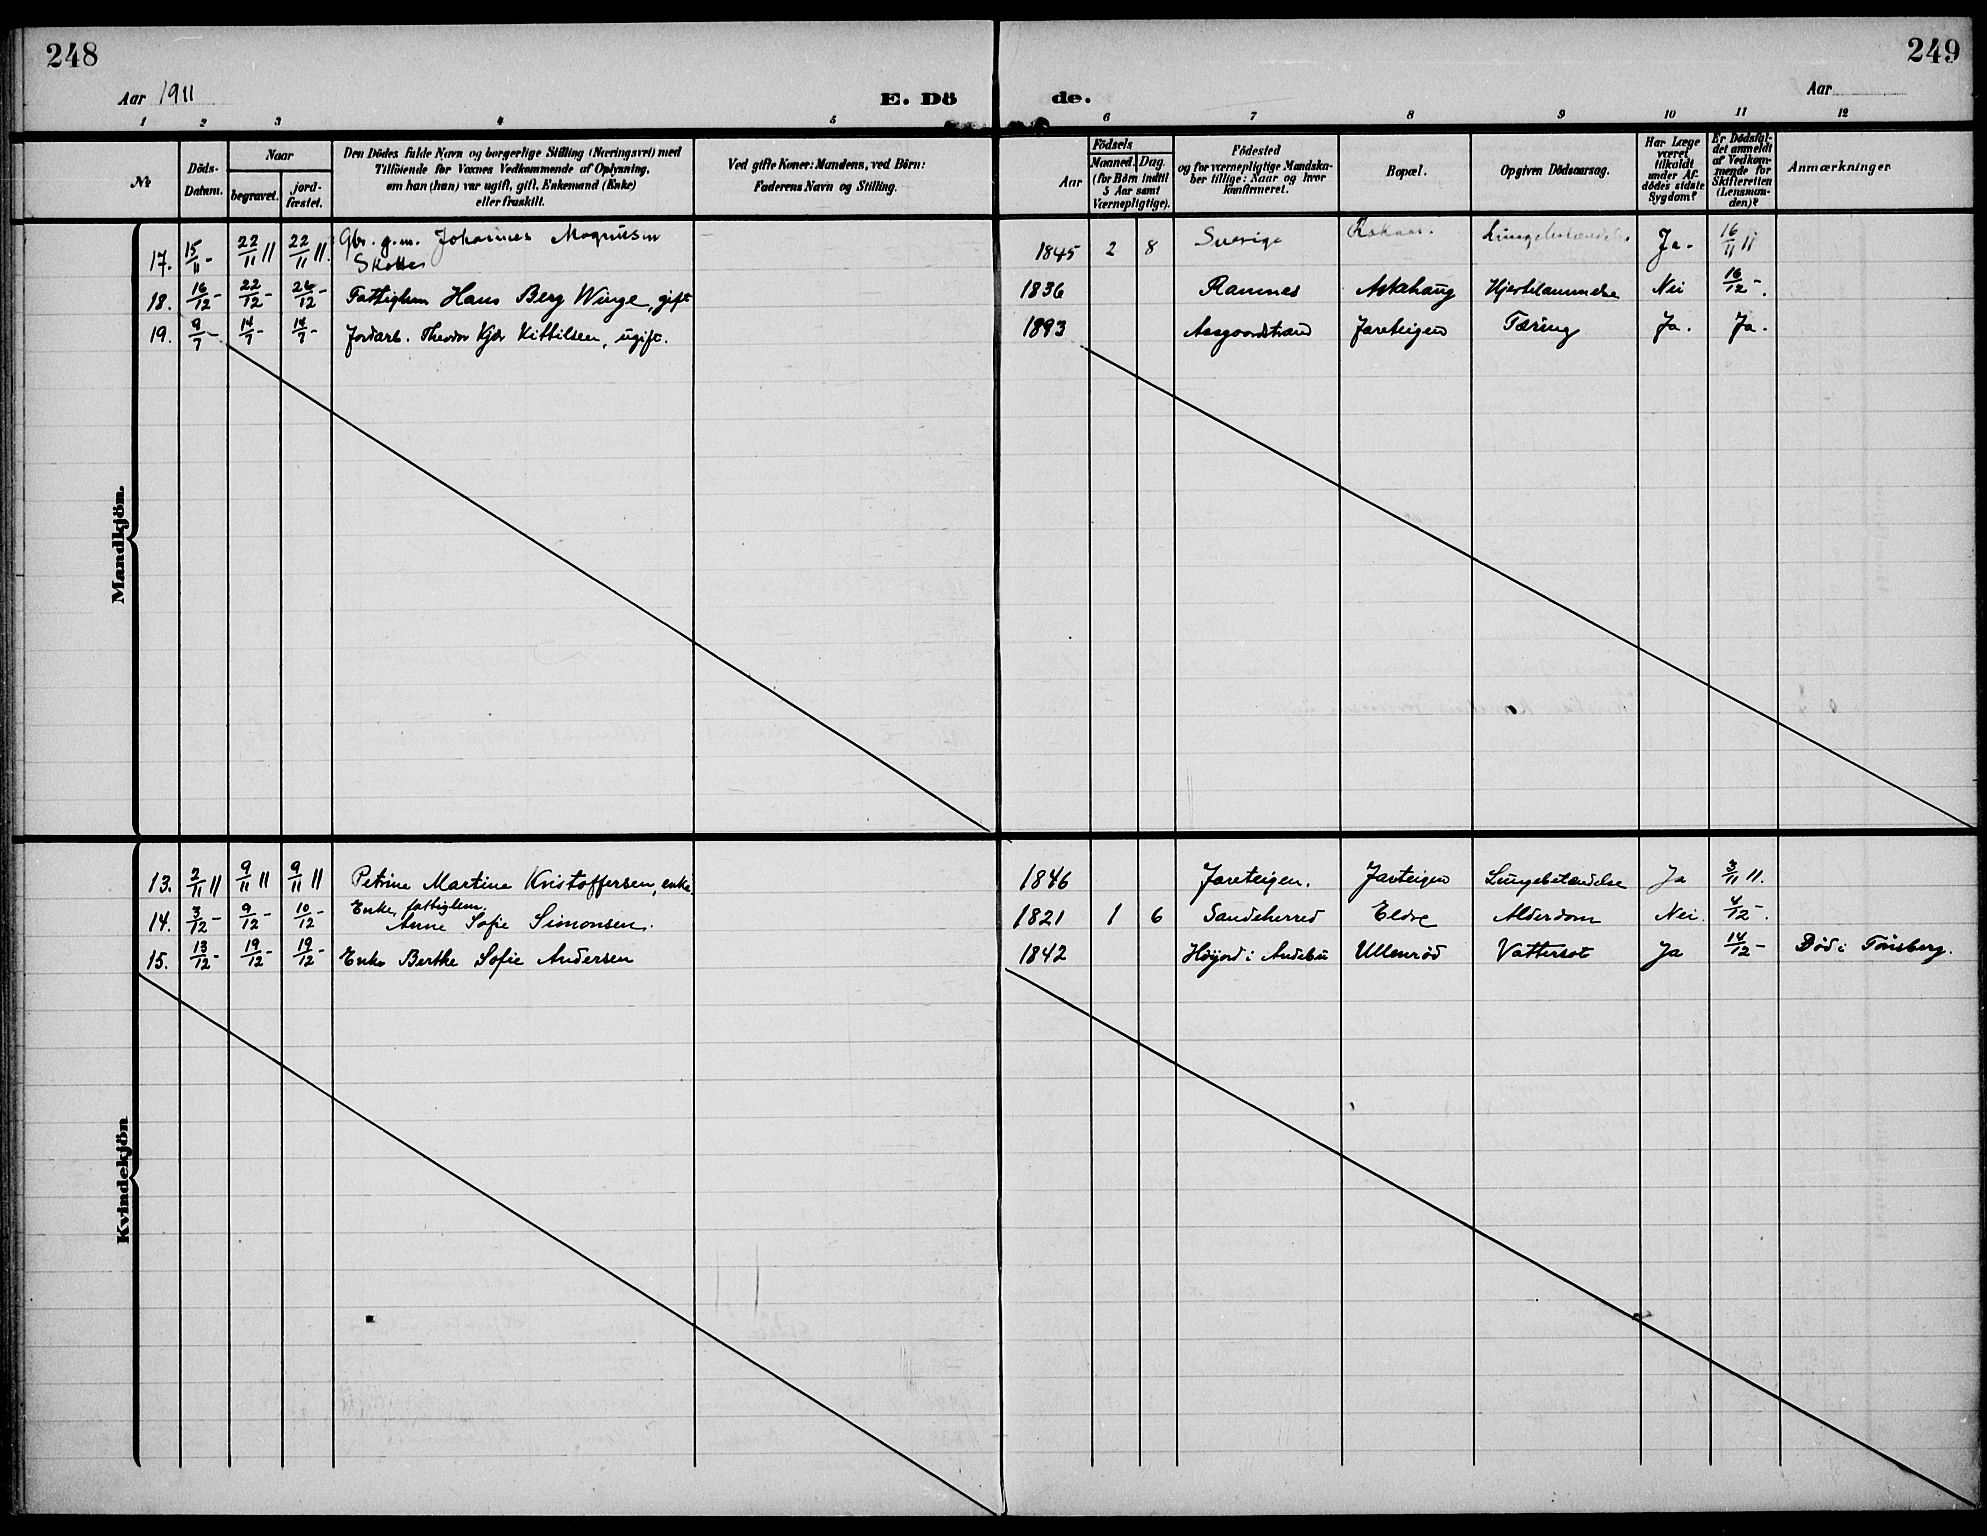 248
249
Aar 1911
E. Dö
de.
Aar
1 2 3 4 5 6 7 8 9 10 11 12
No
Döds-Datum.
Naar
begravet.
jord-fæstet.
Den Dödes fulde Navn og borgerlige Stilling (Næringsvei) med
Tilföiende for Voxnes Vedkommende af Oplysning,
om han (hun) var ugift, gift, Enkemand (Enke)
eller fraskilt.
Ved gifte Koner: Mandens, ved Börn:
Faderens Navn og Stilling.
Födsels
Aar
Maaned. Dag.
(for Börn indtil
5 Aar samt
Værnepligtige).
Födested
og for værnepligtige Mandska-
ber tillige: Naar og hvor
konfirmeret.
Bopæl.
Opgiven Dödsaarsag.
Har Læge
været
tilkaldt
under Af-
dödes sidste
Sygdom?
Er Dödsfal-
det anmeldt
af Vedkom-
mende for
Skifteretten
(Lensman-
den)?
Anmærkninger
Mandkjön.
17. 15/11 - 22/11 11 22/11 11. Gbr. g.m. Johannes Magnusen 1845 2 8 Sverige Lungebetændelse Ja. 16/11 11
18. 16/12 - 22/12 - 26/12 - Fattiglem Hans Berg Winge, gift 1836 Ramnes Askehaug Hjertelammelse Nei 16/12 -.
19. 9/7 - 14/7 - 14/7 - Jordarb. Theodor Kjær Kittilsen, ugift. 1893 Aasgaardstrand Jareteigen Tæring Ja. Ja.
Kvindekjön
13. 2/11 11 9/11 11 9/11 11 Petrine Martine Kristoffersen, enke 1846 Jareteigen. Jarteigen Lungebetændelse Ja 3/11 11.
14. 3/12 - 9/12 - 10/12 - Enke, fattiglem. Anne Sofie Simonsen. 1821 1 6 Sandeherred Eldre Alderdom Nei. 4/12 -.
15. 13/12 - 19/12 - 19/12 - Enke Berthe Sofie Andersen 1842 Höijord i Andebu Ullenrød Vattersot Ja 14/12 - Død i Tønsberg.